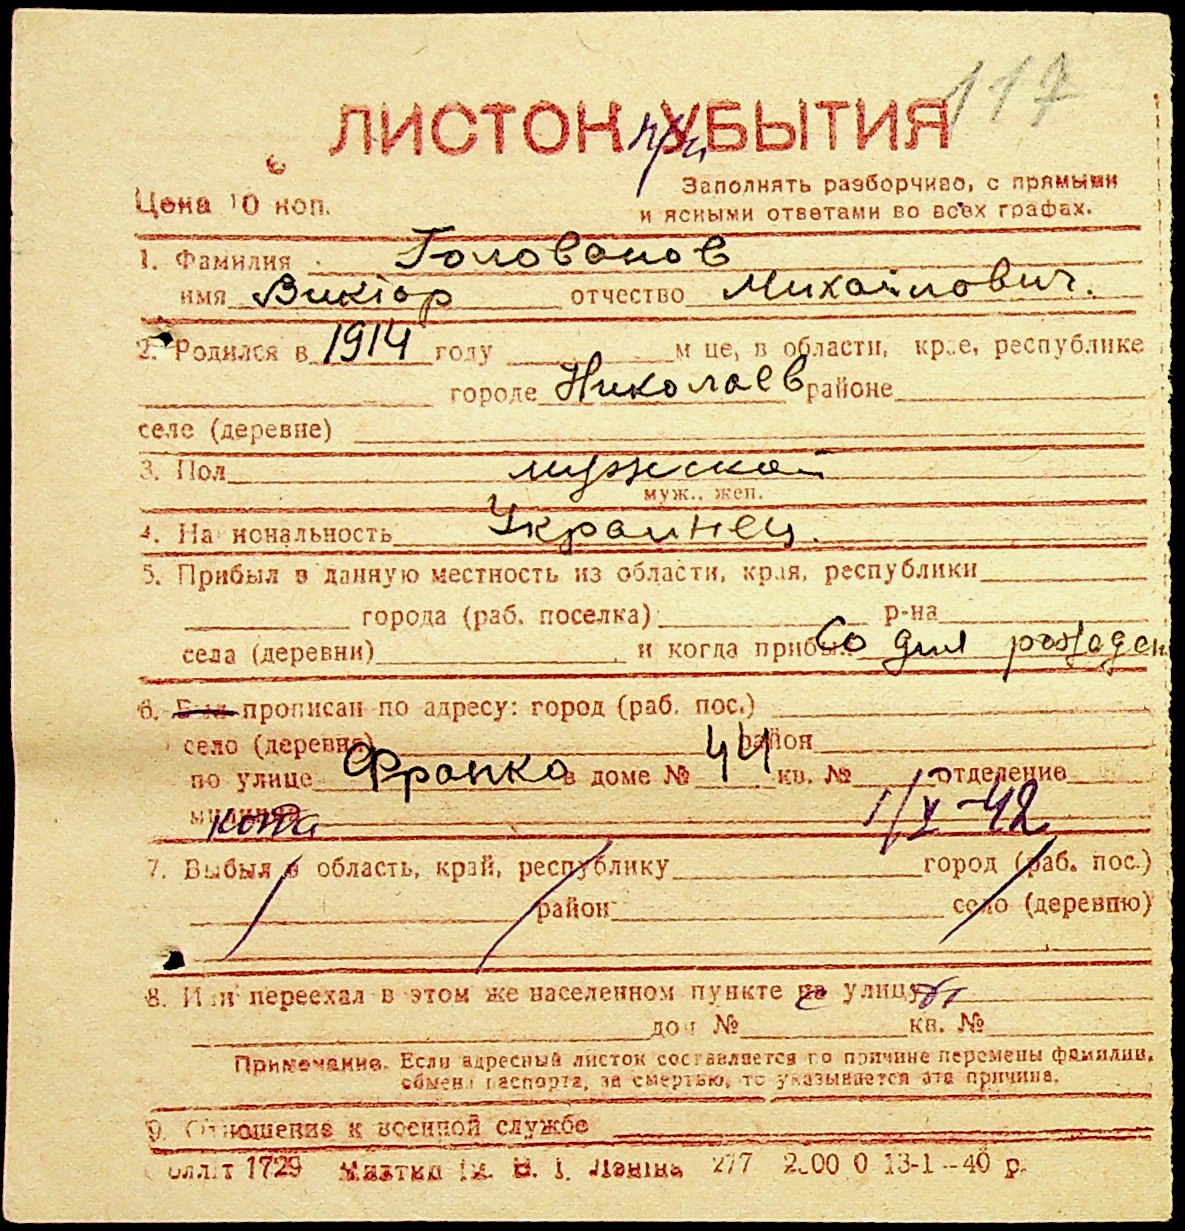 117
ЛИСТОК УБЫТИЯ
при
Цена 10 коп.
Заполнять разборчиво, с прямыми
и ясными ответами во всех графах.
1. Фамилия Голованов
имя Виктор отчество Михайлович.
2. Родился в 1914 году м це, в области, крае, республике
городе Николаев районе
селе (деревне)
3. Пол мужской
муж., жен.
4. Национальность Украинец.
5. Прибыл в данную местность из области, края, республики
города (раб. поселка) р-на
села (деревни) и когда прибыл Со дня рожден.
6. Был прописан по адресу: город (раб. пос.)
село (деревня) район
по улице Франко в доме № 44 кв. № отделение
милиции когда 1/X-42
7. Выбыл в область, край, республику город (раб. пос.)
район село (деревню)
8. Или переехал в этом же населенном пункте на улицу
дом № кв. №
Примечание. Если адресный листок составляется по причине перемены фамилии,
обмена паспорта, за смертью, то указывается эта причина.
9. Отношение к военной службе
Облліт 1729 ім. В. І. Леніна 277 13-1—40 р.